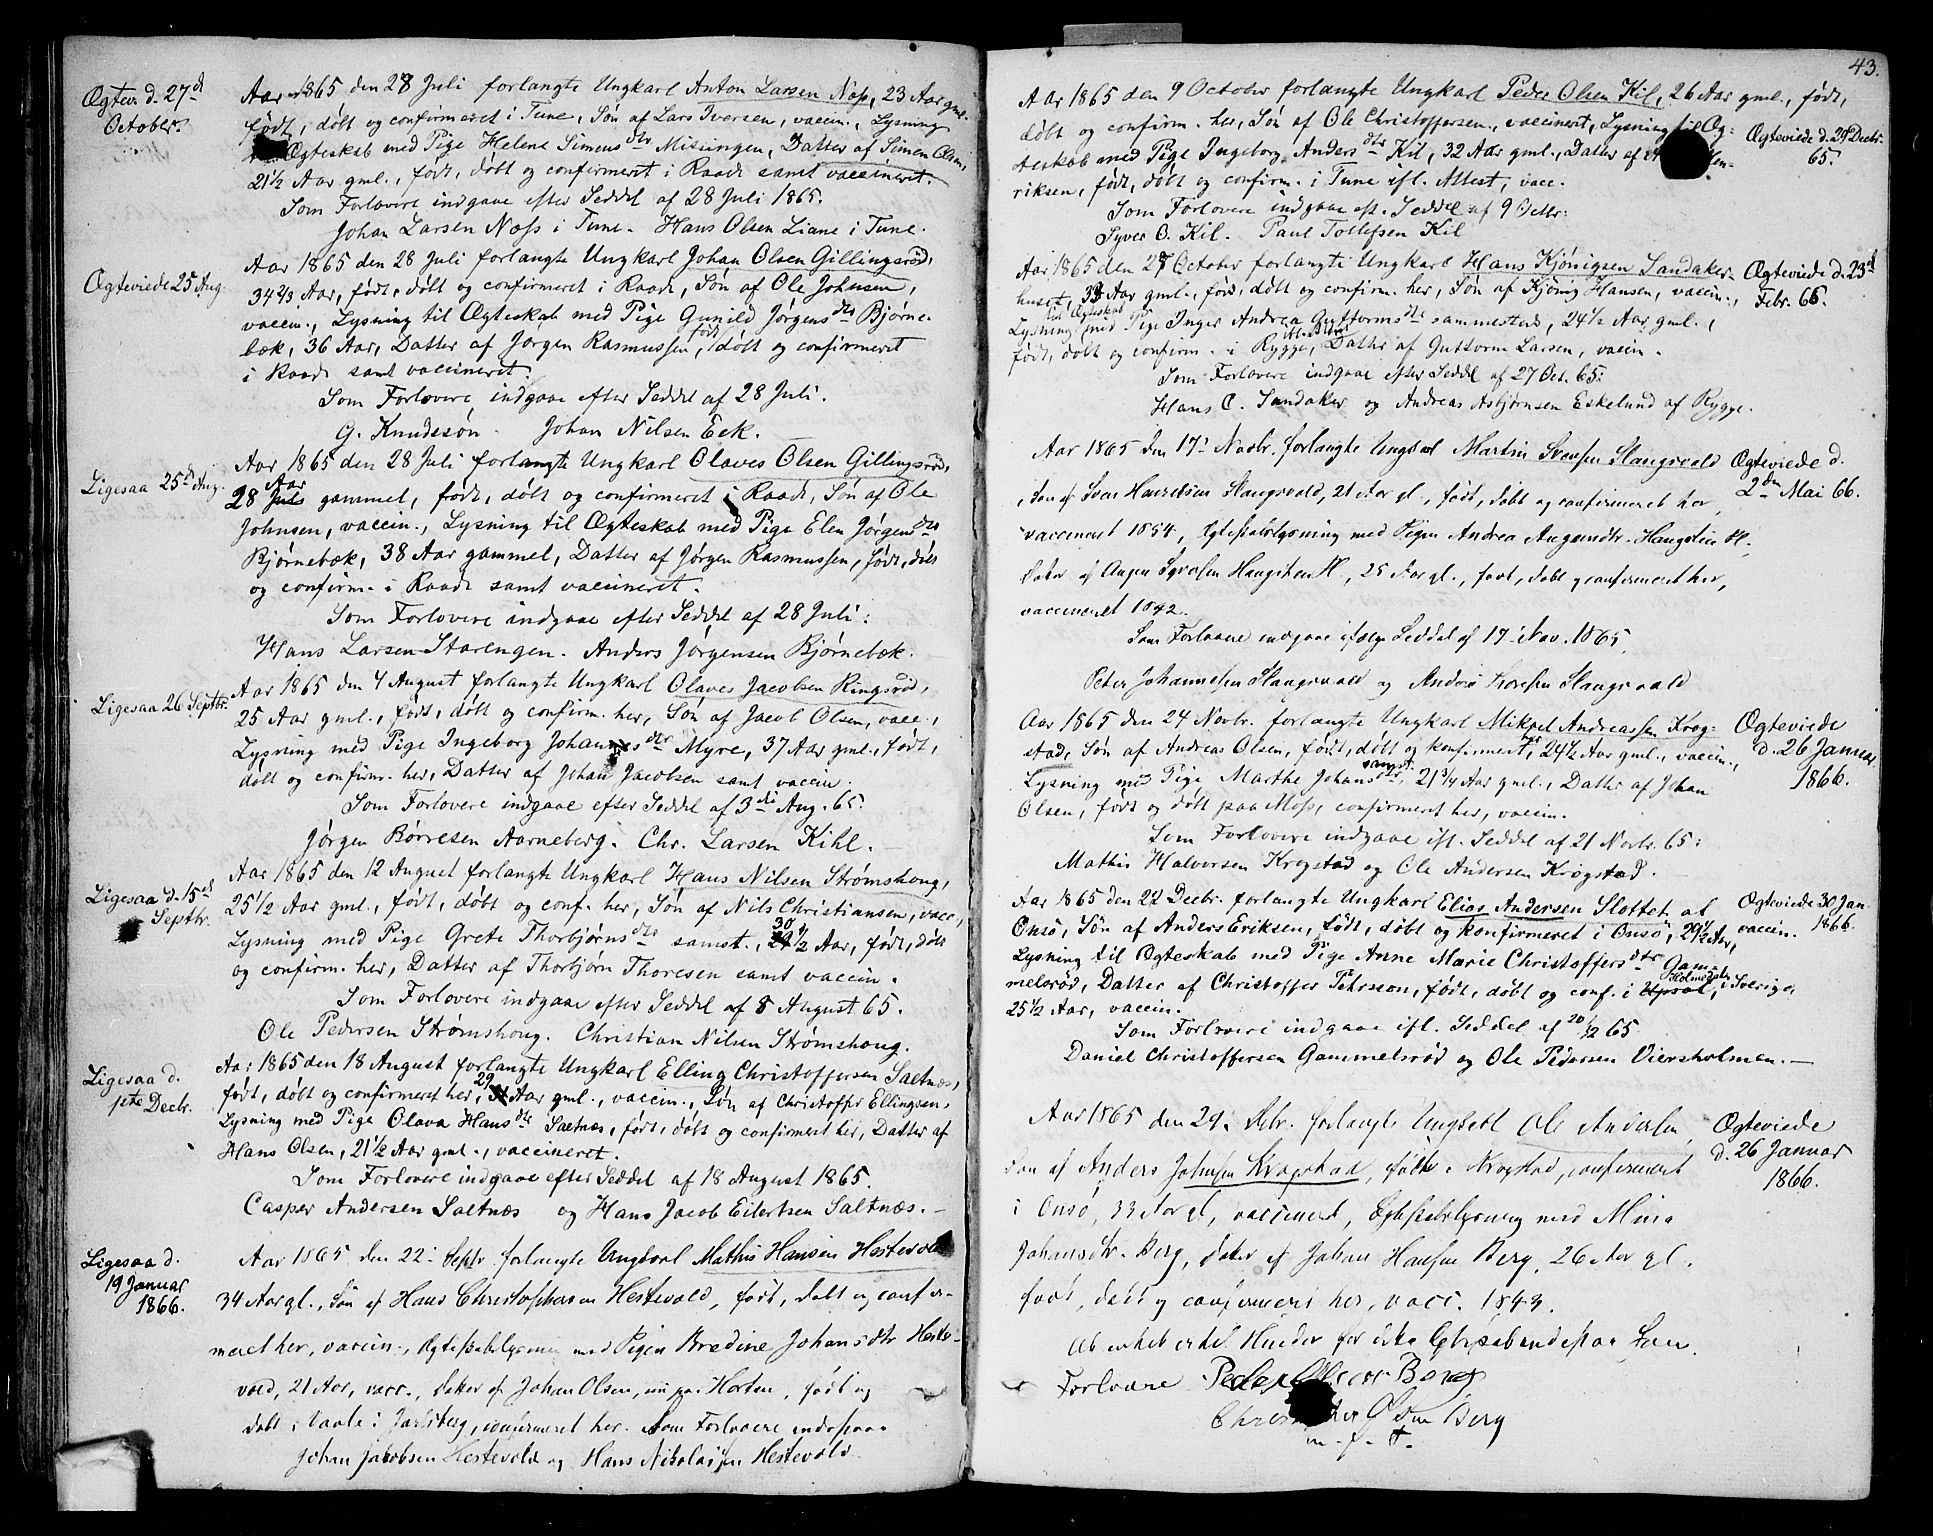 Ægtev. d. 27d
October.
Aar 1865 den 28 Juli forlangte Ungkarl Anton Larsen Noss, 23 Aar gml.
født, døbt og confirmeret i Tune, Søn af Lars Iversen, vaccin., Lysning
Ægteskab med Pige Helene Simensdtr Misingen, Datter af Simen Olsen,
21 1/2 Aar gml., født, døbt og confirmeret i Raade samt vaccineret.
Som Forlovere indgaae efter Seddel af 28 Juli 1865.
Johan Larsen Noss i Tune. Hans Olsen Liane i Tune.
Ægteviede 25 Aug.
Aar 1865 den 28 Juli forlangte Ungkarl Johan Olsen Gillingsrød,
34 2/3 Aar, født, døbt og confirmeret i Raade, Søn af Ole Johnsen,
vaccin., Lysning til Ægteskab med Pige Gunild Jørgensdtr Bjørne-
bæk, 36 Aar, Datter af Jørgen Rasmussen, født, døbt og confirmeret
i Raade samt vaccineret.
Som Forlovere indgaae efter Seddel af 28 Juli.
G. Knudssøn. Johan Nilsen Eek.
Ligesaa 25d Aug.
Aar 1865 den 28 Juli forlangte Ungkarl Olaves Olsen Gillingsrød,
28 Aar gammel, født, døbt og confirmeret i Raade, Søn af Ole
Johnsen, vaccin., Lysning til Ægteskab med Pige Elen Jørgensdtr
Bjørnebæk, 38 Aar gammel, Datter af Jørgen Rasmussen, født, døbt
og confirm. i Raade samt vaccineret.
Som Forlovere indgaae efter Seddel af 28 Juli:
Hans Larsen Starengen. Anders Jørgensen Bjørnebæk.
Ligesaa 26 Septbr.
Aar 1865 den 4 August forlangte Ungkarl Olaves Jacobsen Ringsrød,
25 Aar gml., født, døbt og confirm. her, Søn af Jacob Olsen, vacc.,
Lysning med Pige Ingeborg Johannesdtr Myre, 37 Aar gml., født,
døbt og confirm. her, Datter af Johan Jacobsen samt vaccin.
Som Forlovere indgaae efter Seddel af 3di Aug. 65.
Jørgen Børresen Aarneberg. Chr. Larsen Kihl.
Ligesaa d. 15d
Septbr.
Aar 1865 den 12 August forlangte Ungkarl Hans Nilsen Strømshoug,
25 1/2 Aar gml., født, døbt og conf. her, Søn af Nils Christiansen, vacc,
Lysning med Pige Grete Thorbjørnsdtr samst., 30 1/2 Aar, født, døbt
og confirm. her, Datter af Thorbjørn Thoresen samt vaccin.
Som Forlovere indgaae efter Seddel af 8 August 65.
Ole Pedersen Strømshoug. Christian Nilsen Strømshoug.
Ligesaa d.
1ste Decbr.
Aar 1865 den 18 August forlangte Ungkarl Elling Christoffersen Saltnæs,
født, døbt og confirmeret her, 29 Aar gml., vaccin., Søn af Christoffer Ellingsen,
Lysning med Pige Olava Hansdtr Saltnæs, født, døbt og confirmeret her, Datter af
Hans Olsen, 21 1/2 Aar gml., vaccineret.
Som Forlovere indgaae efter Seddel af 18 August 1865.
Casper Andersen Saltnæs og Hans Jacob Eilertsen Saltnæs.
Ligesaa d.
19 Januar
1866.
Aar 1865 den 22. Septbr. forlangte Ungkarl Mathis Hansen Hestevold
34 Aar gl., Søn af Hans Christophersen Hestevold, født, døbt og confir-
meret her, vaccin., Ægteskabslysning med Pigen Bredine Johansdtr Heste-
vold, 21 Aar, vacc., datter af Johan Olsen, nu paa Horten, født og
døbt i Vaale i Jarlsberg, confirmeret her. Som Forlovere indestaa
Johan Jacobsen Hestevold og Hans Nikolaisen Hestevold.
43.
Aar 1865 den 9 October forlangte Ungkarl Peder Olsen Kil, 26 Aar gml., født,
døbt og confirm. her, Søn af Ole Christoffersen, vaccineret, Lysning til Æg-
teskab med Pige Ingeborg Andersdtr Kil, 32 Aar gml., Datter af
riksen, født, døbt og confirm. i Tune efl. Attest, vacc.
Som Forlovere indgaae eft. Seddel af 9 Octbr:
Syver O. Kil. Paul Tollefsen Kil
Ægteviede d. 29 Decbr.
65.
Aar 1865 den 27 October forlangte Ungkarl Hans Kjønigsen Sandaker-
huset, 33 Aar gml., født, døbt og confirm. her, Søn af Kjønig Hansen, vaccin.,
til Ægteskab
Lysning med Pige Inger Andrea Guttormsdtr sammesteds, 24 1/2 Aar gml.,
født, døbt og confirm. i Rygge, Datter af Guttorm Larsen, vaccin.
Som Forlovere indgaae efter Seddel af 27 Oct. 65:
Hans C. Sandaker og Andreas Asbjørnsen Eskelund af Rygge.
Ægteviede d. 23d
Febr. 66.
Aar 1865 den 17. Novbr. forlangte Ungkarl Martin Svensen Slangsvold
, Søn af Sven Slangsvold, 21 Aar gl., født, døbt og confirmeret her,
vaccineret 1854, Ægteskabslysning med Pigen Andrea Augundtr. Haugsten H.,
25 Aar gl., født, døbt og confirmeret her,
vaccineret 1842.
Som Forlovere indgaae ifølge Seddel af 17. Nov. 1865,
Peter Johannesen Slangsvold og Anders Slangsvold
Ægteviede d.
2den Mai 66.
Aar 1865 den 24 Novbr. forlangte Ungkarl Mikael Andreassen Krog-
stad, Søn af Andreas Olsen, født, døbt og konfirmert her, 24 1/2 Aar gml., vaccin.,
Lysning med Pige Marthe Johansdtr samst., 21 3/4 Aar gml., Datter af Johan
Olsen, født og døbt paa Moss, confirmeret her, vaccin.
Som Forlovere indgaae eft. Seddel af 21 Novbr. 65:
Mathis Halvorsen Krogstad og Ole Andersen Krogstad.
Ægteviede
d. 26 Januar
1866.
Aar 1865 den 22 Decbr. forlangte Ungkarl Elias Andersen Slottet af
Onsø, Søn af Anders Eriksen, født, døbt og konfirmeret i Onsø, 29 1/2 Aar, vaccin.
Lysning til Ægteskab med Pige Anne Marie Christoffersdtr Gam-
melsrød, Datter af Christoffer Pehrsson, født, døbt og conf. i Holmedahl, i Sverige,
25 1/2 Aar, vaccin.
Som Forlovere indgaae ifl. Seddel af 20/12 65
Daniel Christoffersen Gammelsrød og Ole Pedersen Viersholmen.
Ægteviede 30 Jan
1866.
Aar 1865 den 29. Decbr. forlangte Ungkarl Ole Andersen,
Søn af Anders Johnsen Krogstad, født i Krogstad, confirmeret
i Onsø, 33 Aar gl., vaccineret, Ægteskabslysning med Mina
Johansdtr. Berg, datter af Johan Hansen Berg, 26 Aar gl.
født, døbt og confirmeret her, vacc. 1843.
At enhver Hinder for dette Ægteskab indestaa som
Forlovere Peder Olsen Berg
Christoffer Olsen Berg
m. f. P.
Ægteviede
d. 26 Januar
1866.